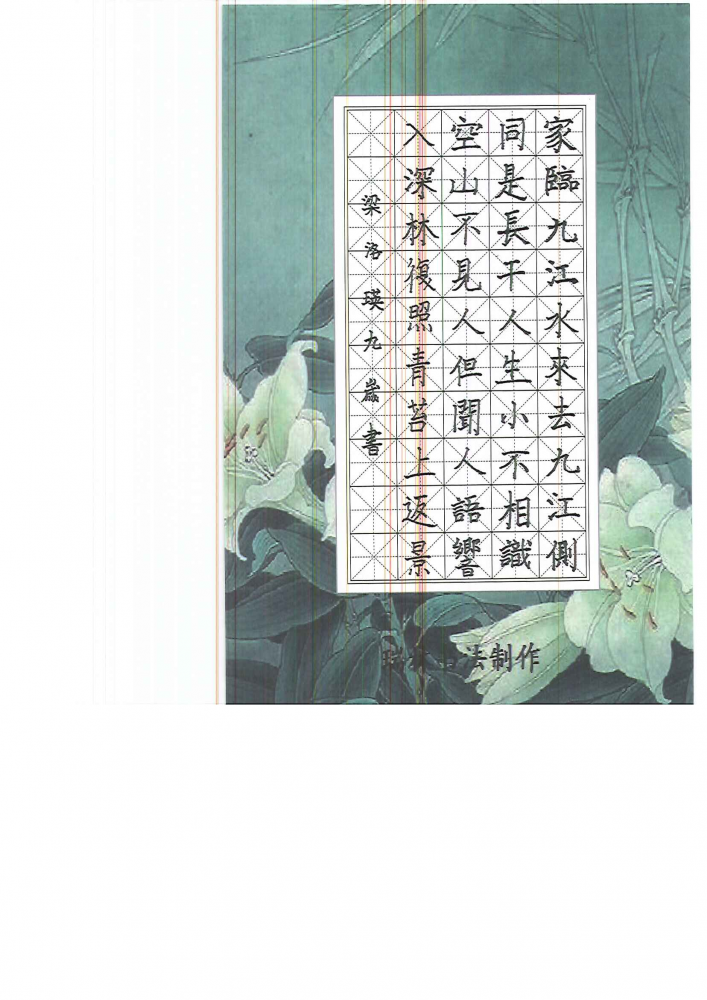 家臨九江水來去九江側
同是長干人生小不相識
空山不見人但聞人語響
入深林復照青苔上返景
梁洛瑛九歲書
法制作